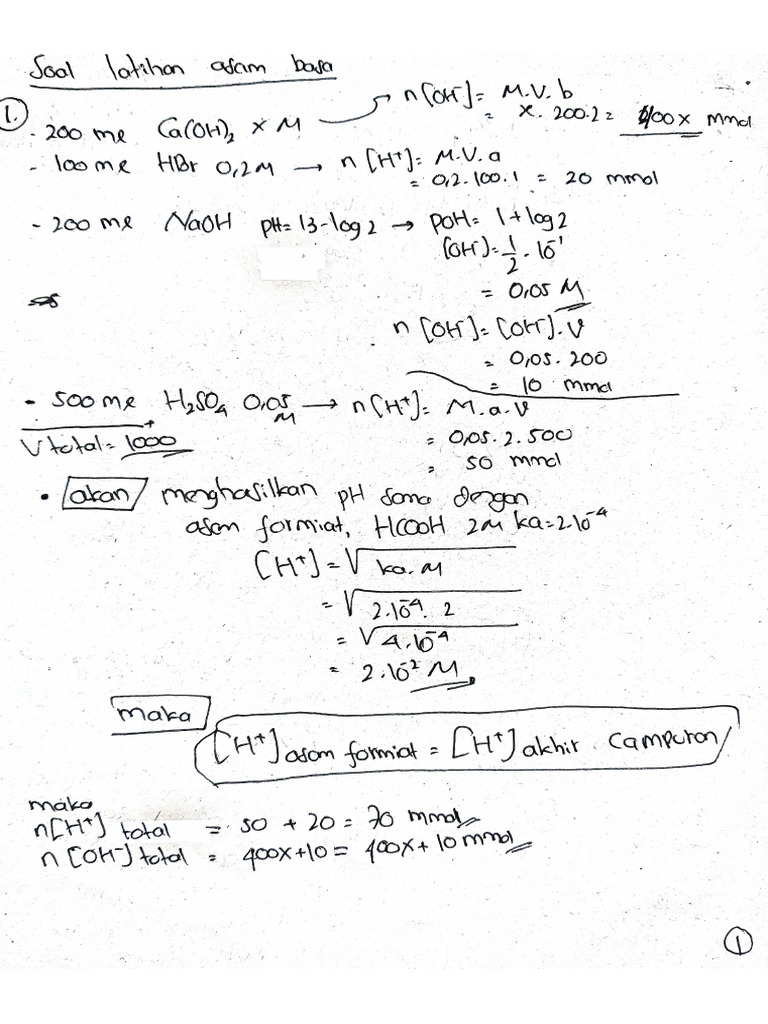 Soal latihan asam basa
1.
- 200 ml Ca(OH)₂ x M → n[OH⁻] = M.V.b
= x. 200.2 = 400x mmol
- 100 ml HBr 0,2M → n[H⁺] = M.V.a
= 0,2.100.1 = 20 mmol
- 200 ml NaOH pH = 13-log 2 → pOH = 1+log 2
[OH⁻] = 1/2 . 10⁻¹
= 0,05 M
n [OH⁻] = [OH⁻].V
= 0,05.200
= 10 mmol
- 500 ml H₂SO₄ 0,05 M → n[H⁺] = M.a.V
= 0,05.2.500
= 50 mmol
V total = 1000
• akan menghasilkan pH sama dengan
asam formiat, HCOOH 2M ka=2.10⁻⁴
[H⁺] = √ka.M
= √2.10⁻⁴. 2
= √4.10⁻⁴
= 2.10⁻² M
maka
[H⁺] asam formiat = [H⁺] akhir campuran
maka
n[H⁺] total = 50 + 20 = 70 mmol
n [OH⁻] total = 400x+10 = 400x + 10 mmol
1